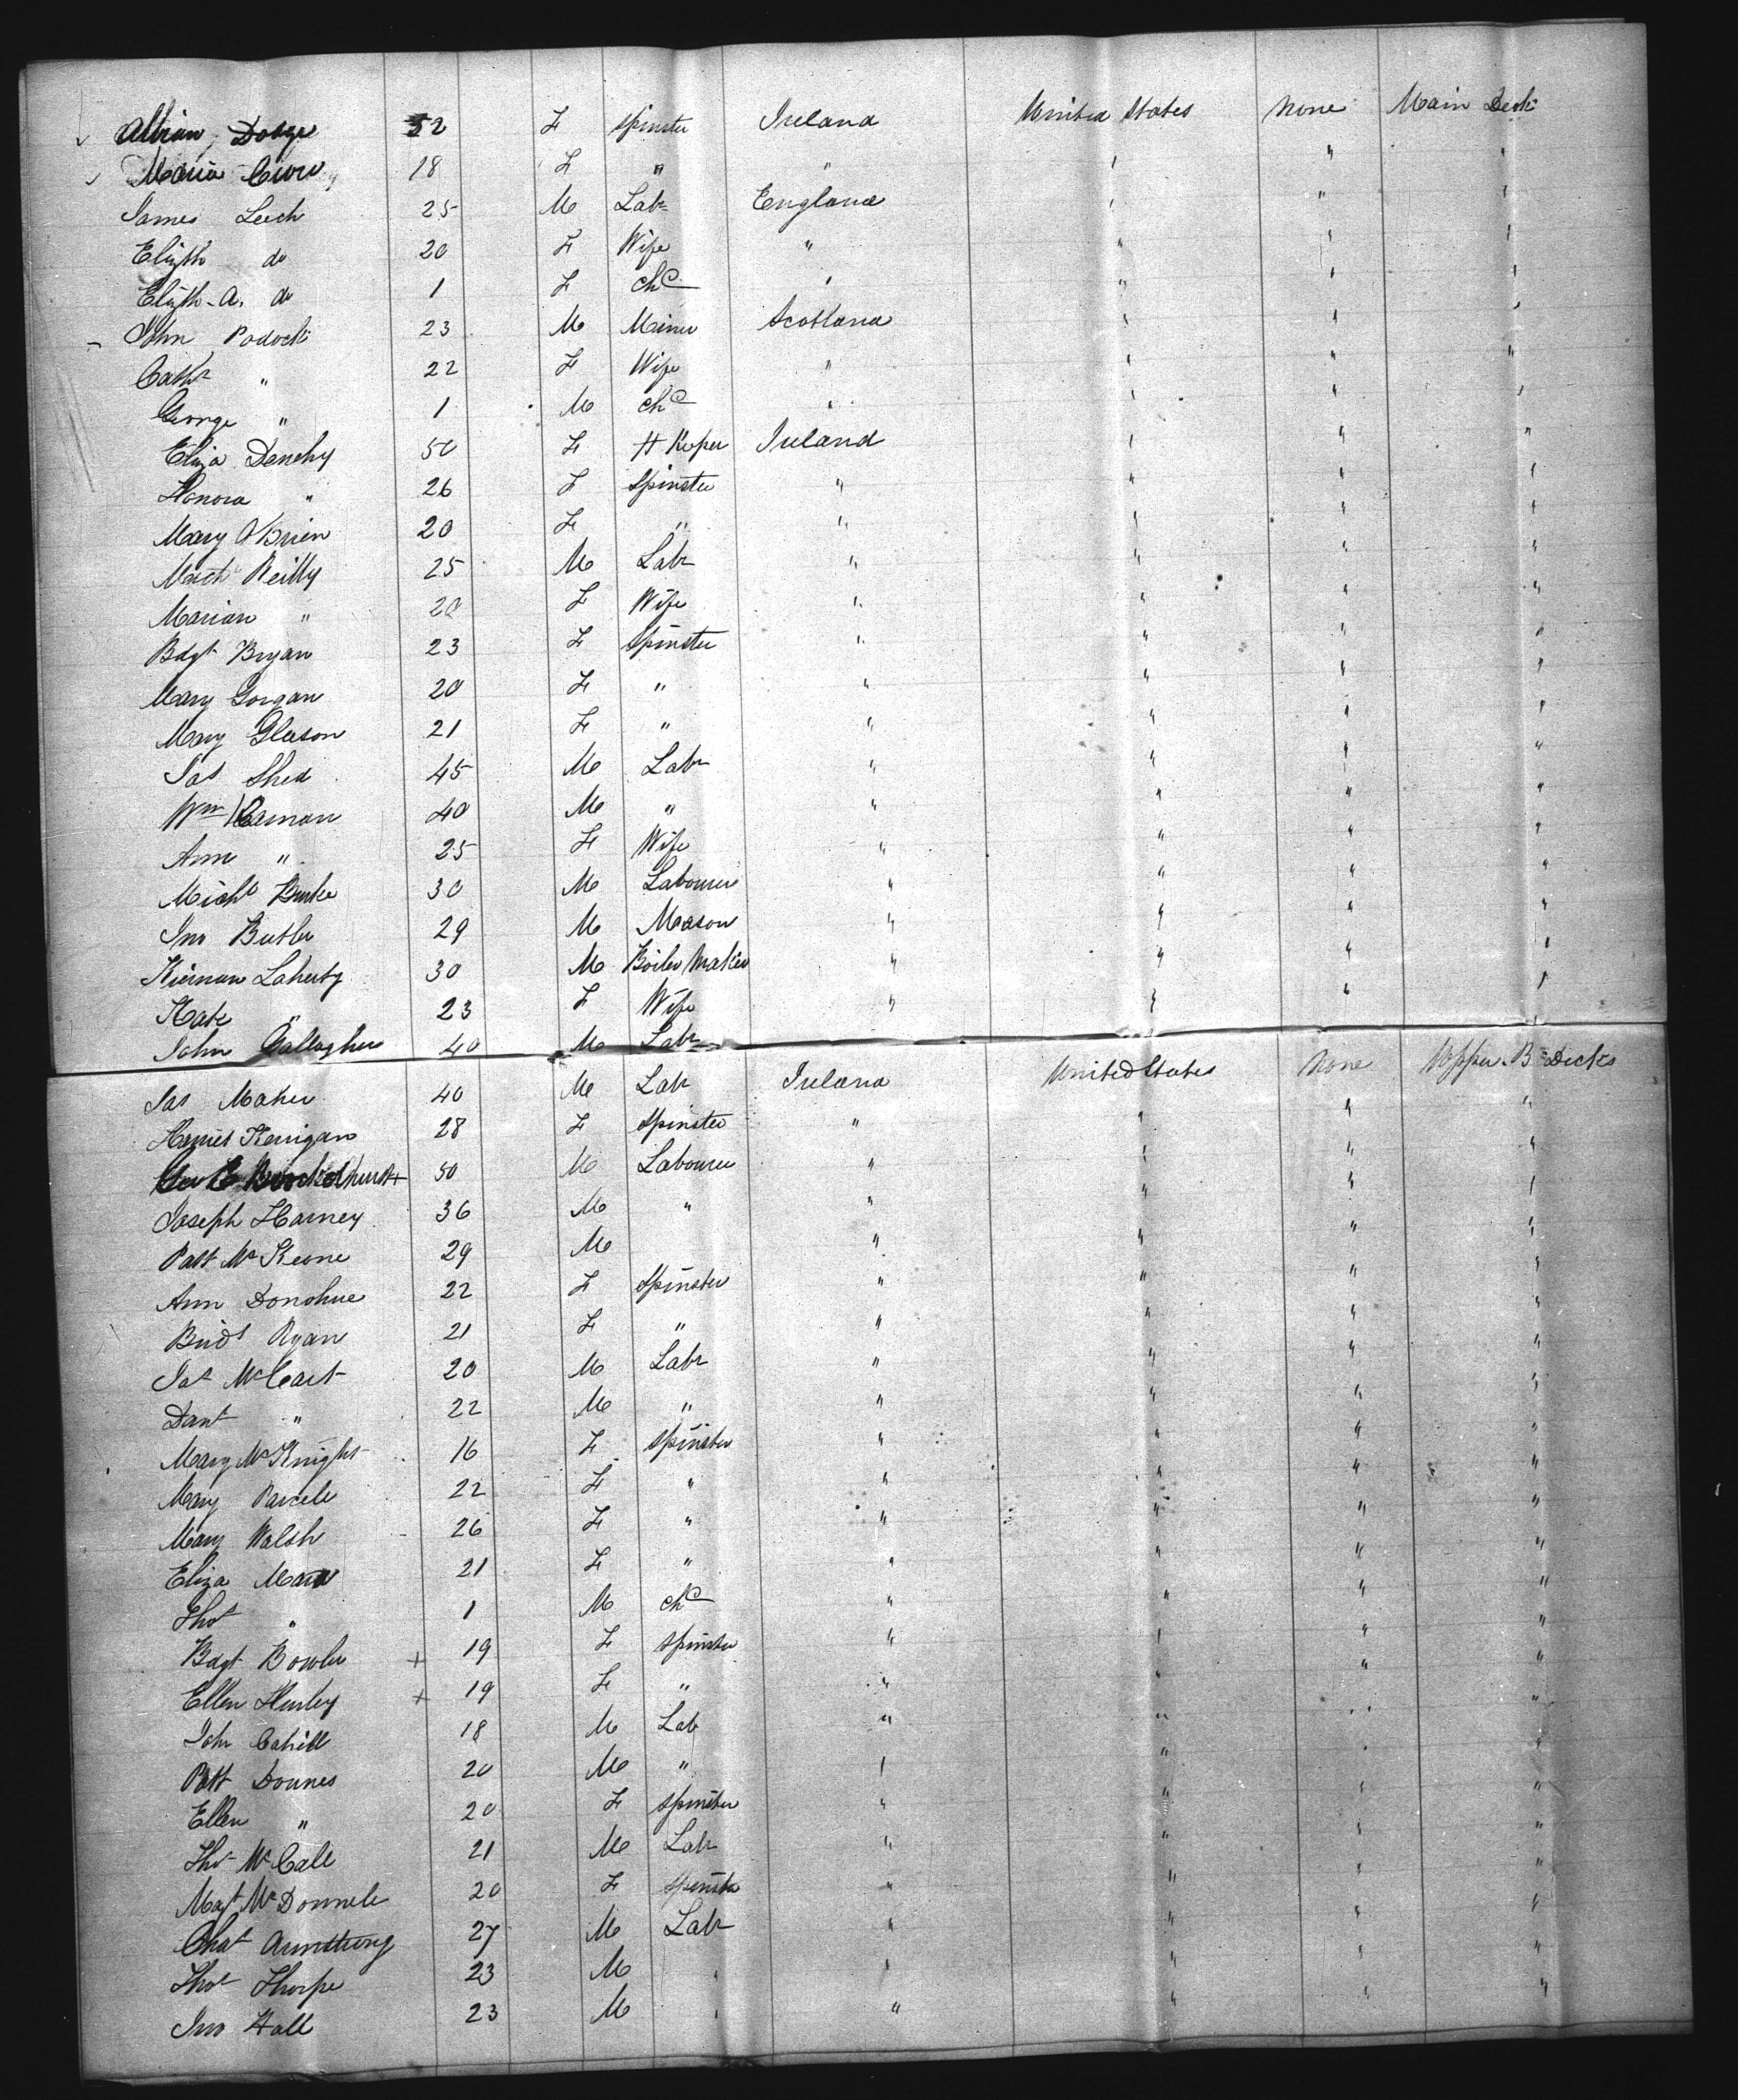 Albian Dodge 52 F Spinster Ireland United States None Main Deck
Maria 18 F " " " " "
James Leech 25 M Labr England " " "
Elizth do 20 F Wife " " " "
Elizth A. do 1 F chd " " " "
John Padock 23 M Miner Scotland " " "
Cathe " 22 F Wife " " " "
George " 1 M chd " " " "
Eliza Denehy 50 F H Keper Ireland " " "
Honora " 26 F Spinster " " " "
Mary O'Brien 20 F " " " " "
Reilly 25 M Labr " " " "
Marian " 20 F Wife " " " "
Bdgt Bryan 23 F Spinster " " " "
Mary Gorgan 20 F " " " " "
Mary Gleeson 21 F " " " " "
Jas Shea 45 M Labr " " " "
Wm 40 M " " " " "
Ann " 25 F Wife " " " "
Michl Burke 30 M Labourer " " " "
Jno Butler 29 M Mason " " " "
Kiernan Laherty 30 M Boiler Maker " " " "
Kate " 23 F Wife " " " "
John Gallagher 40 M Labr " " " "
Jas Maher 40 M Labr Ireland United States None Upper B Decks
Kerrigan 28 F Spinster " " " "
50 M Labourer " " " "
Joseph Harney 36 M " " " " "
Patt McKeone 29 M " " " "
Ann Donohue 22 F Spinster " " " "
Bridt Ryan 21 F " " " " "
Jas McCart 20 M Labr " " " "
Danl " 22 M " " " " "
Mary McKnight 16 F Spinster " " " "
Mary Parcell 22 F " " " " "
Mary Walsh 26 F " " " " "
Eliza Mara 21 F " " " " "
Thos " 1 M chd " " " "
Bdgt Bowler + 19 F Spinster " " " "
Ellen Hurley + 19 F " " " " "
John Cahill 18 M Lab " " " "
Patt Downes 20 M " " " " "
Ellen " 20 F Spinster " " " "
Thos McCall 21 M Labr " " " "
Magt McDonnell 20 F Spinster " " " "
Chas Armstrong 27 M Labr " " " "
Thos Thorpe 23 M " " " " "
Jno Hall 23 M " " " " "